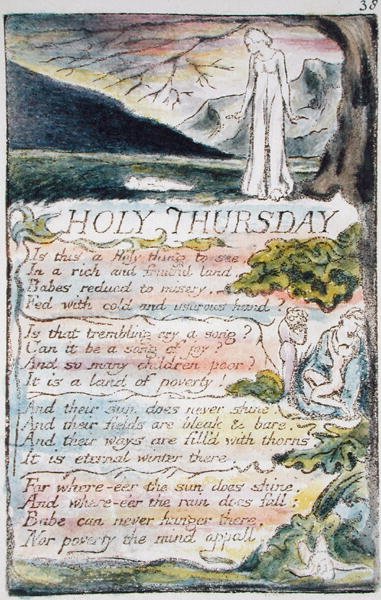 38
HOLY THURSDAY
Is this a holy thing to see,
In a rich and fruitful land,
Babes reduced to misery,
Fed with cold and usurous hand?
Is that trembling cry a song?
Can it be a song of joy?
And so many children poor?
It is a land of poverty!
And their sun does never shine.
And their fields are bleak & bare.
And their ways are fill'd with thorns
It is eternal winter there.
For where-e'er the sun does shine,
And where-e'er the rain does fall:
Babe can never hunger there,
Nor poverty the mind appall.